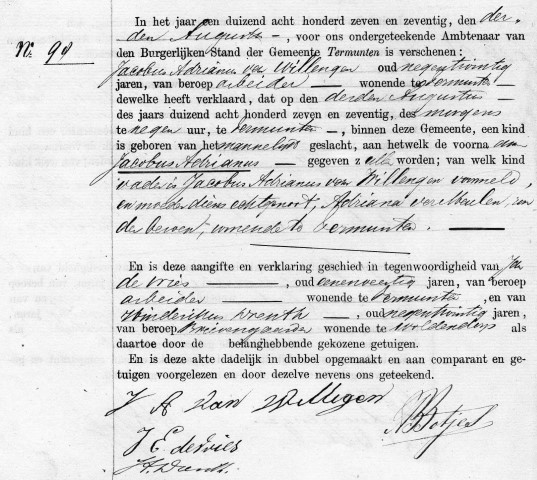 In het jaar een duizend acht honderd zeven en zeventig, den der-
No. 90
den Augustus, voor ons ondergeteekende Ambtenaar van
den Burgerlijken Stand der Gemeente Termunten is verschenen:
Jacobus Adrianus van Willegen oud negentwintig
jaren, van beroep arbeider wonende te Termunten
dewelke heeft verklaard, dat op den derden Augustus
des jaars duizend acht honderd zeven en zeventig, des morgens
te negen uur, te Termunten, binnen deze Gemeente, een kind
is geboren van het mannelijk geslacht, aan hetwelk de voorna am
Jacobus Adrianus gegeven z al worden; van welk kind
vader is Jacobus Adrianus van Willegen voormeld,
en moeder diens echtgenoot, Adriana Vermeulen, zon
der beroep, wonende te Termunten.
En is deze aangifte en verklaring geschied in tegenwoordigheid van Jan
de Vries, oud eenenveertig jaren, van beroep
arbeider wonende te Termunten, en van
Hinderikus Drenth, oud negentwintig jaren,
van beroep Brievengaarder wonende te Woldendorp als
daartoe door de belanghebbende gekozene getuigen.
En is deze akte dadelijk in dubbel opgemaakt en aan comparant en ge-
tuigen voorgelezen en door dezelve nevens ons geteekend.
J A van Willegen
Botjes
J E de Vries
H. Drenth.